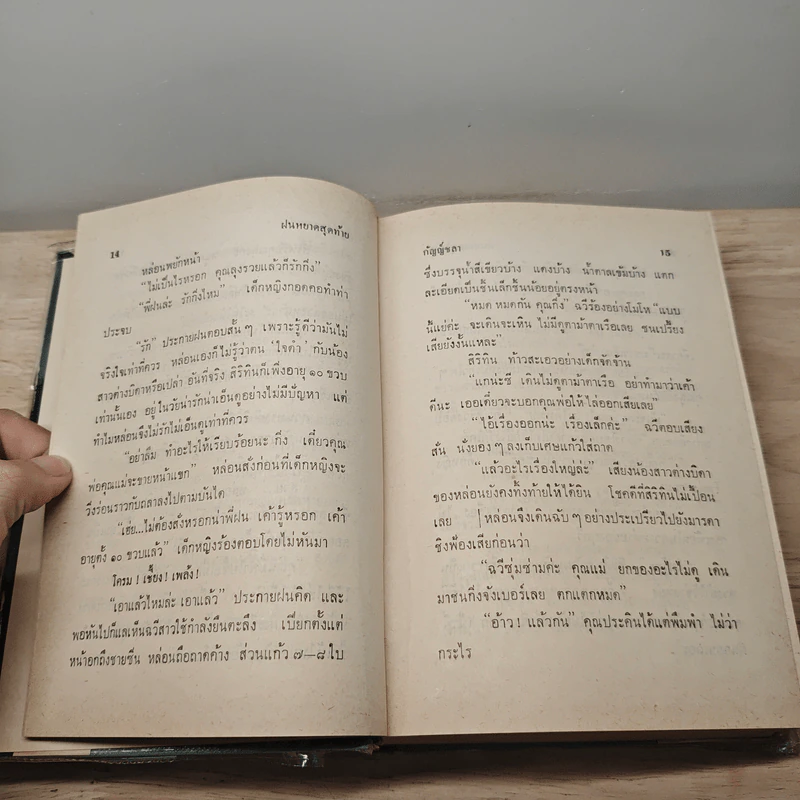 14
ฝนหยาดสุดท้าย
หล่อนพยักหน้า
"ไม่เป็นไรหรอก คุณลุงรวยแล้วก็รักกิ่ง"
"พี่ฝนล่ะ รักกิ่งไหม" เด็กหญิงกอดคอทำท่า
ประจบ
"รัก" ประกายฝนตอบสั้น ๆ เพราะรู้ดีว่ามันไม่
จริงใจเท่าที่ควร หล่อนเองก็ไม่รู้ว่าตน 'ใจดำ' กับน้อง
สาวต่างบิดาหรือเปล่า อันที่จริง สิริทินก็เพิ่งอายุ ๑๐ ขวบ
เท่านั้นเอง อยู่ในวัยน่ารักน่าเอ็นดูอย่างไม่มีปัญหา แต่
ทำไมหล่อนจึงไม่รักไม่เอ็นดูเท่าที่ควร
"อย่าลืม ทำอะไรให้เรียบร้อยนะ กิ่ง เดี๋ยวคุณ
พ่อคุณแม่จะขายหน้าแขก" หล่อนสั่งก่อนที่เด็กหญิงจะ
วิ่งร่อนราวกับถลาลงไปตามบันได
"เฮ่ย...ไม่ต้องสั่งหรอกน่าพี่ฝน เค้ารู้หรอก เค้า
อายุตั้ง ๑๐ ขวบแล้ว" เด็กหญิงร้องตอบโดยไม่หันมา
โครม ! เชี้ยง ! เพล้ง !
"เอาแล้วไหมล่ะ เอาแล้ว" ประกายฝนคิด และ
พอหันไปก็แลเห็นฉวีสาวใช้กำลังยืนตะลึง เปียกตั้งแต่
หน้าอกถึงชายซิ่น หล่อนถือถาดค้าง ส่วนแก้ว ๗—๘ ใบ
กัญญ์ชลา
15
ซึ่งบรรจุน้ำสีเขียวบ้าง แดงบ้าง น้ำตาลเข้มบ้าง แตก
ละเอียดเป็นชิ้นเล็กชิ้นน้อยอยู่ตรงหน้า
"หมด หมดกัน คุณกิ่ง" ฉวีร้องอย่างโมโห "แบบ
นี้แย่ค่ะ จะเดินจะเหิน ไม่มีดูตาม้าตาเรือเลย ชนเปรี้ยง
เสียยังงั้นแหละ"
สิริทิน ท้าวสะเอวอย่างเด็กจัดจ้าน
"แกน่ะซี เดินไม่ดูตาม้าตาเรือ อย่าทำมาว่าเค้า
ดีนะ เออเดี๋ยวจะบอกคุณพ่อให้ไล่ออกเสียเลย"
"ไอ้เรื่องออกน่ะ เรื่องเล็กค่ะ" ฉวีตอบเสียง
สั่น นั่งยอง ๆ ลงเก็บเศษแก้วใส่ถาด
"แล้วอะไรเรื่องใหญ่ล่ะ" เสียงน้องสาวต่างบิดา
ของหล่อนยังคงทิ้งท้ายให้ได้ยิน โชคดีที่สิริทินไม่เปื้อน
เลย หล่อนจึงเดินฉับ ๆ อย่างประเปรียวไปยังมารดา
ชิงฟ้องเสียก่อนว่า
"ฉวีซุ่มซ่ามค่ะ คุณแม่ ยกของอะไรไม่ดู เดิน
มาชนกิ่งจังเบอร์เลย ตกแตกหมด"
"อ้าว ! แล้วกัน" คุณประคินได้แต่พึมพำ ไม่ว่า
กระไร